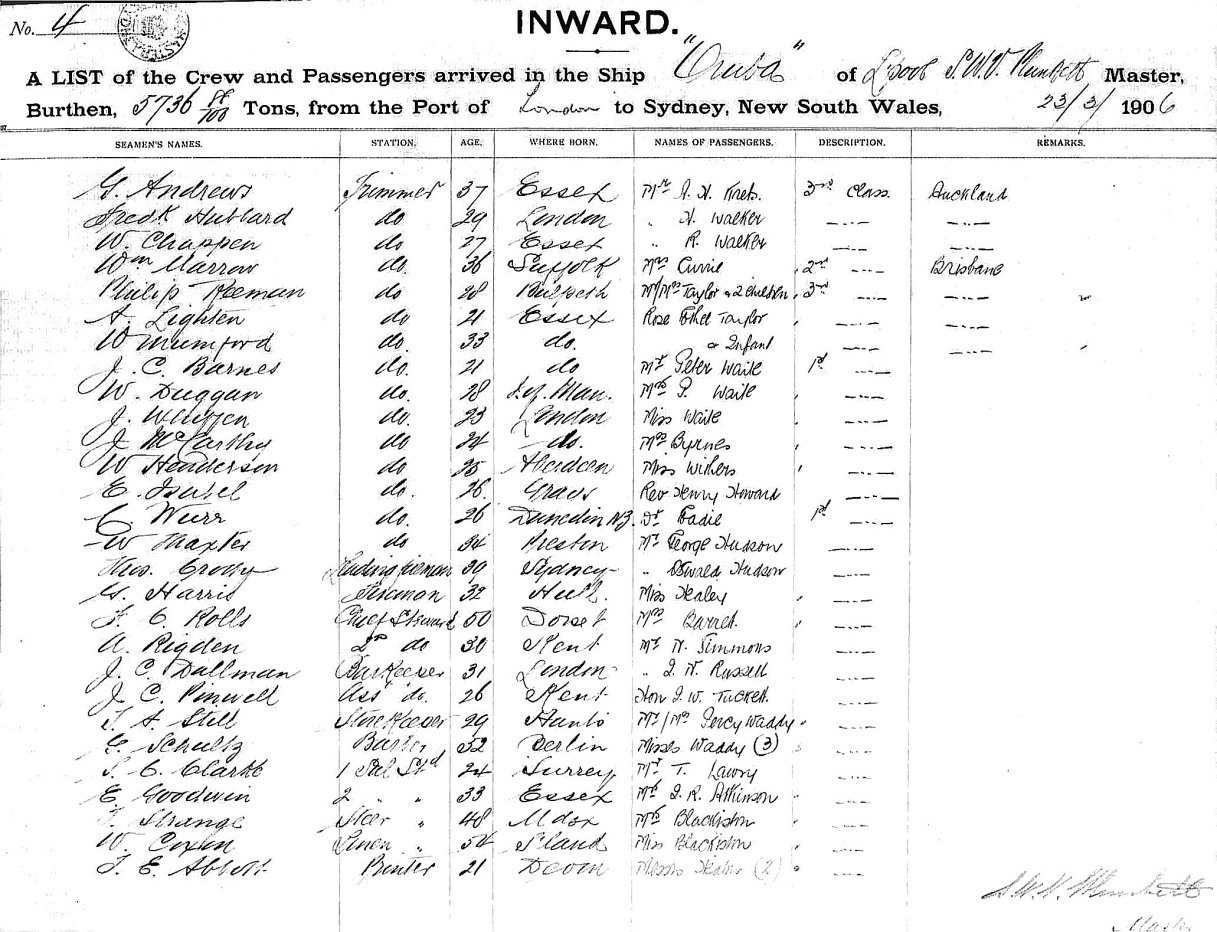 No. 4
INWARD.
A LIST of the Crew and Passengers arrived in the Ship "Oruba" of L'pool Master,
Burthen, 5736 /100 Tons, from the Port of London to Sydney, New South Wales, 23/3/1906
SEAMEN'S NAMES. STATION. AGE. WHERE BORN. NAMES OF PASSENGERS. DESCRIPTION. REMARKS.
G. Andrews Trimmer 37 Essex Mr 3rd Class. Auckland
Fredk Hubbard do 29 London " H. Walker
W. Chappen do 27 Essex " R. Walker
Wm Marrow do. 36 Suffolk Mrs Currie 2nd Brisbane
Philip Keeman do 28 M/Mrs Taylor & 2 children 3rd
A. Lighten do 21 Essex Rose Ethel Taylor
W Mumford do. 33 do. & Infant
J. C. Barnes do. 21 do Mr Peter Waite 1st
W. Duggan do. 28 I. of Man. Mrs P. Waite
J. do. 23 London Miss Waite
J McCarthy do 24 do. Mrs Byrnes
W Henderson do 25 Aberdeen Miss Withers
E. do. 26. Rev Henry Howard
C. Wurr do. 26 Dunedin NZ. Dr Eadie 1st
W Haxter do 34 Preston Mr George Hudson
Thos. Leading fireman 39 Sydney " Oswald Hudson
G. Harris Fireman 32 Hull. Miss Healey
F. C. Rolls Chief Steward 50 Dorset Mrs Barrett
A. Rigden 2nd do 30 Kent Mr N. Simmons
J. C. Dallman Barkeeper 31 London " J. N. Russell
J. C. Pinwell Ass do. 26 Kent Hon J. W. Tuckett.
T. A. Still Storekeeper 29 Hants Mr/Mrs Percy Waddy
E. Schultz Barber 32 Berlin Misses Waddy (3)
S. C. Clarke 1 Sal Std 24 Surrey Mr T. Lawry
E. Goodwin 2 " " 33 Essex Mrs J. R. Atkinson
F. Strange Steer " 48 Mdox Mrs Blackiston
W. Coxen Linen " 54 Miss Blackiston
F. E. Abbott Printer 21 Devon (2)
Master